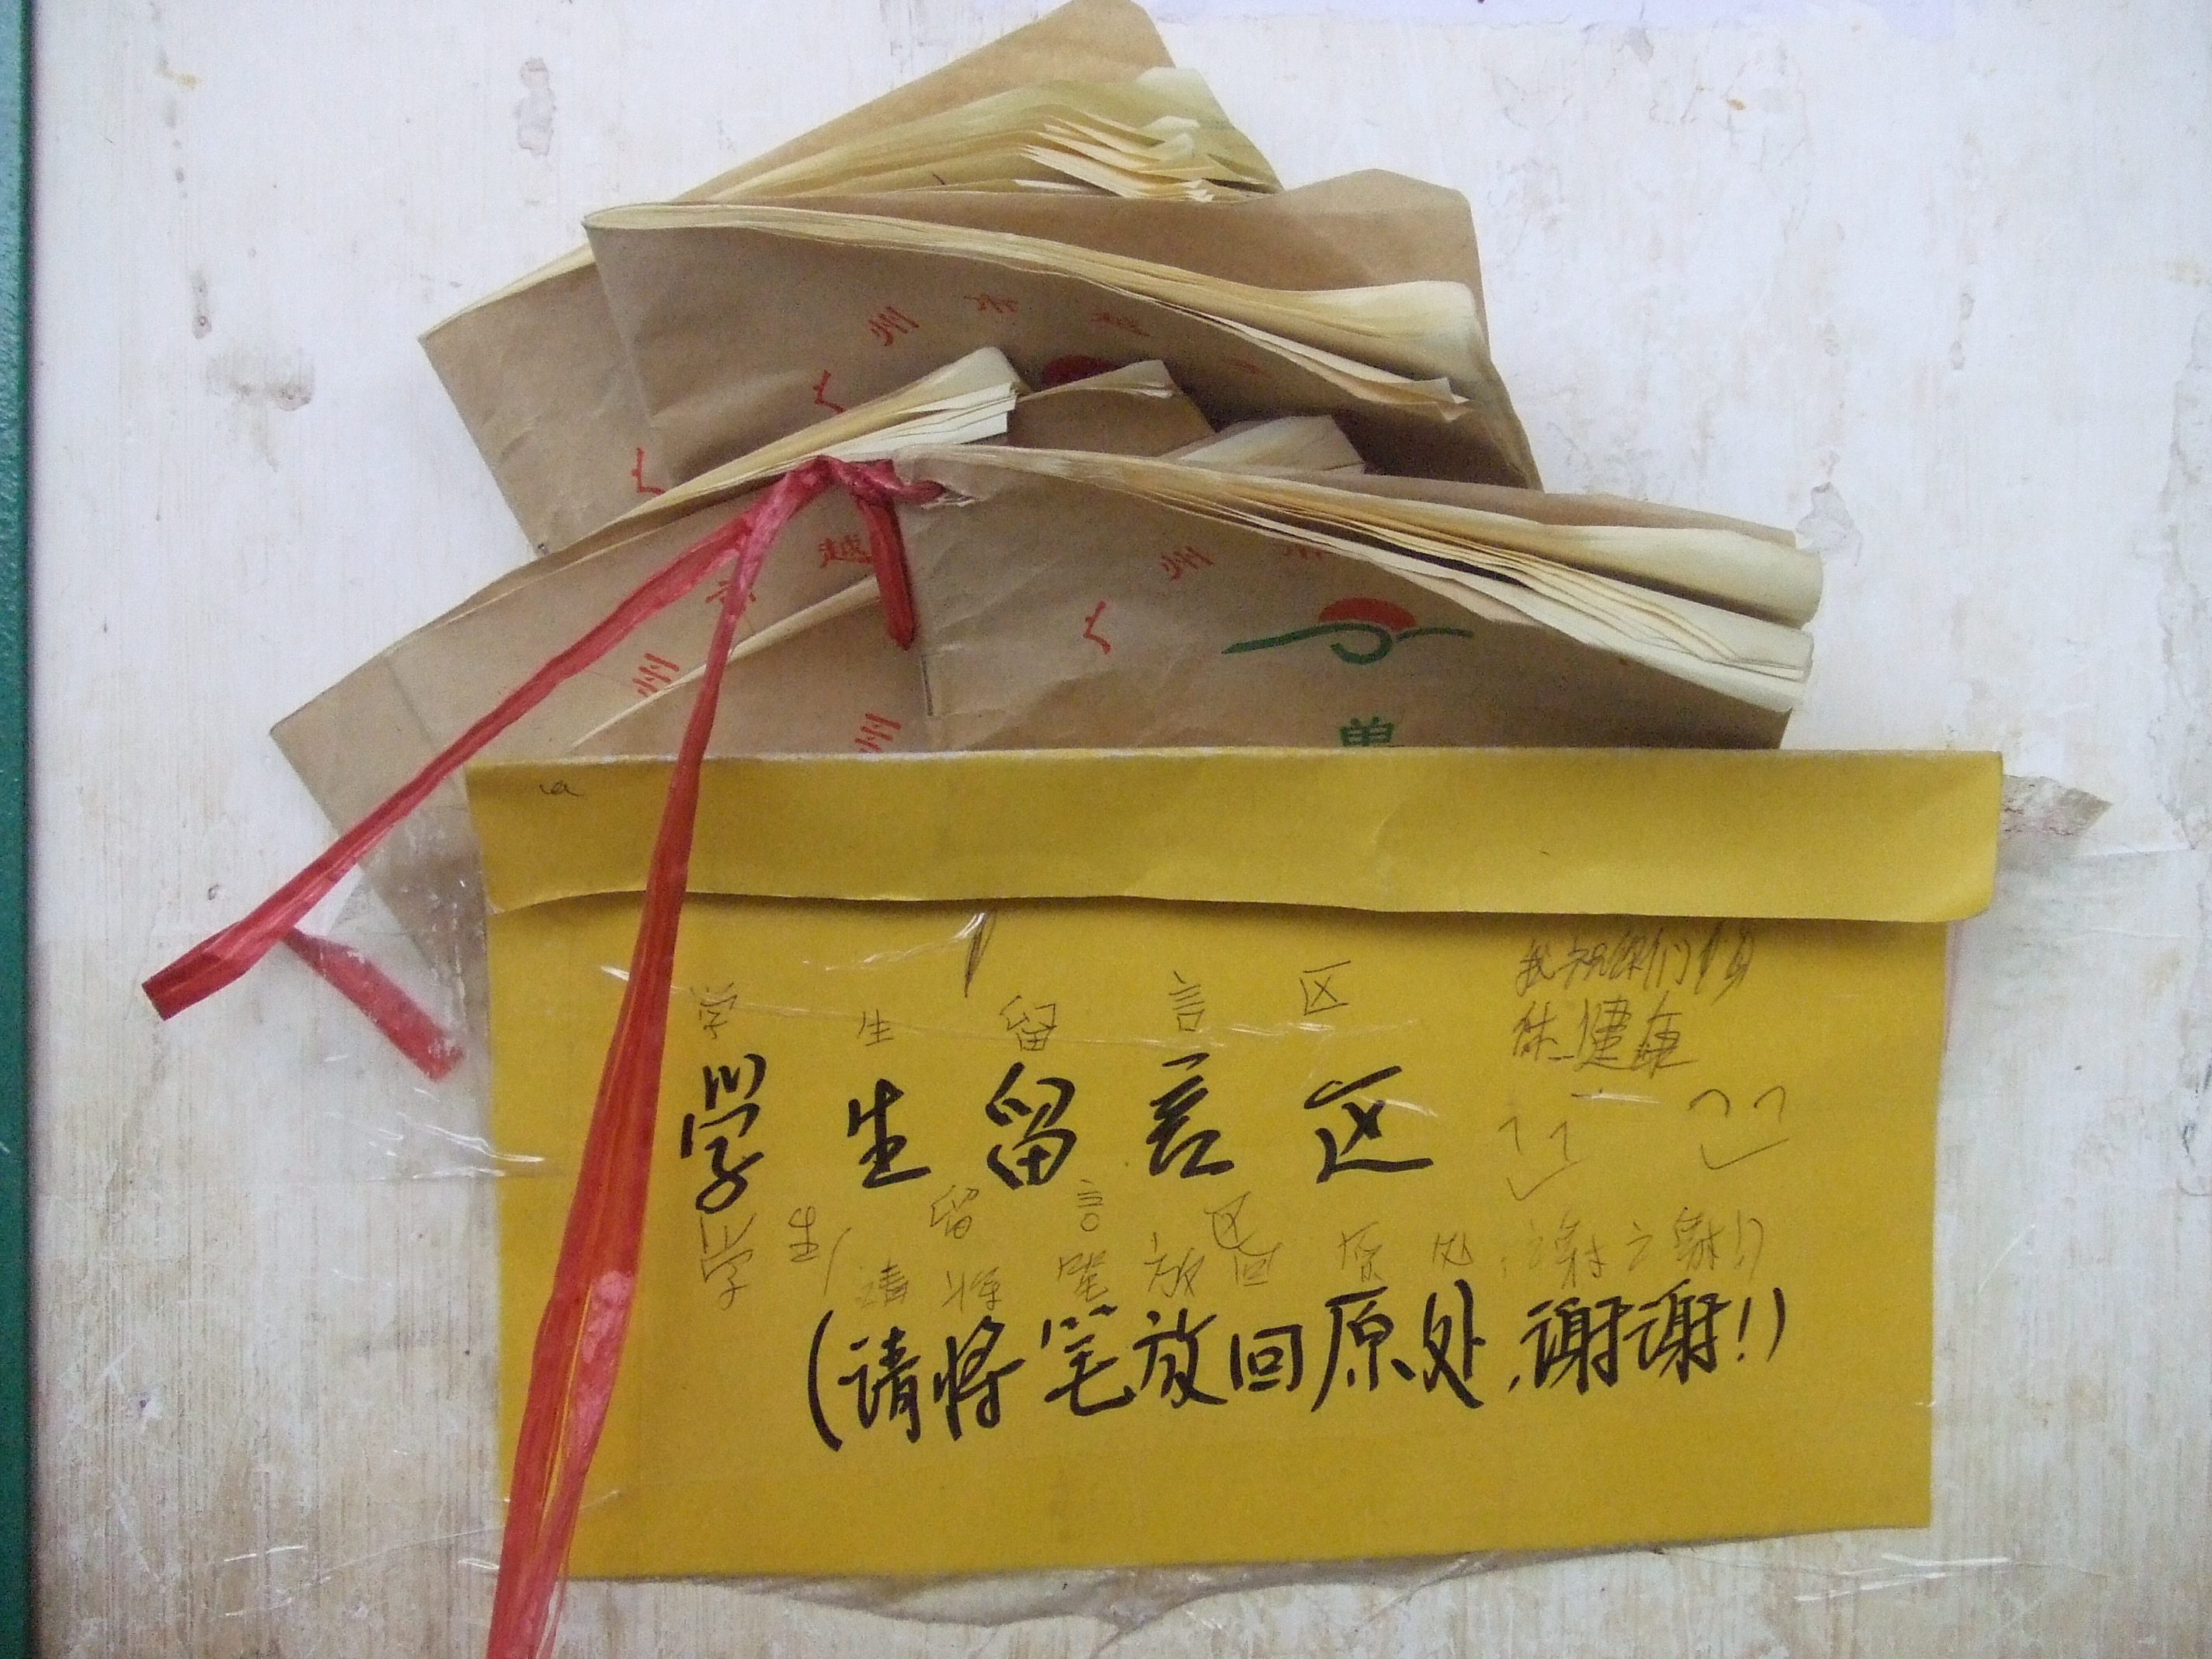 广州市越
广
越
市
州
州
广州市
兽
学生留言区
我祝你们身
体健康
学生留言区
学生留言区
请将笔放回原处,谢谢!)
(请将笔放回原处,谢谢!)